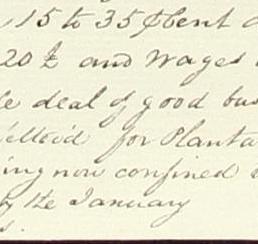 15 to 35 ⅌Cent
20 ⅌ and Wages
deal of good bus
for Planta
ing now confined
by the January